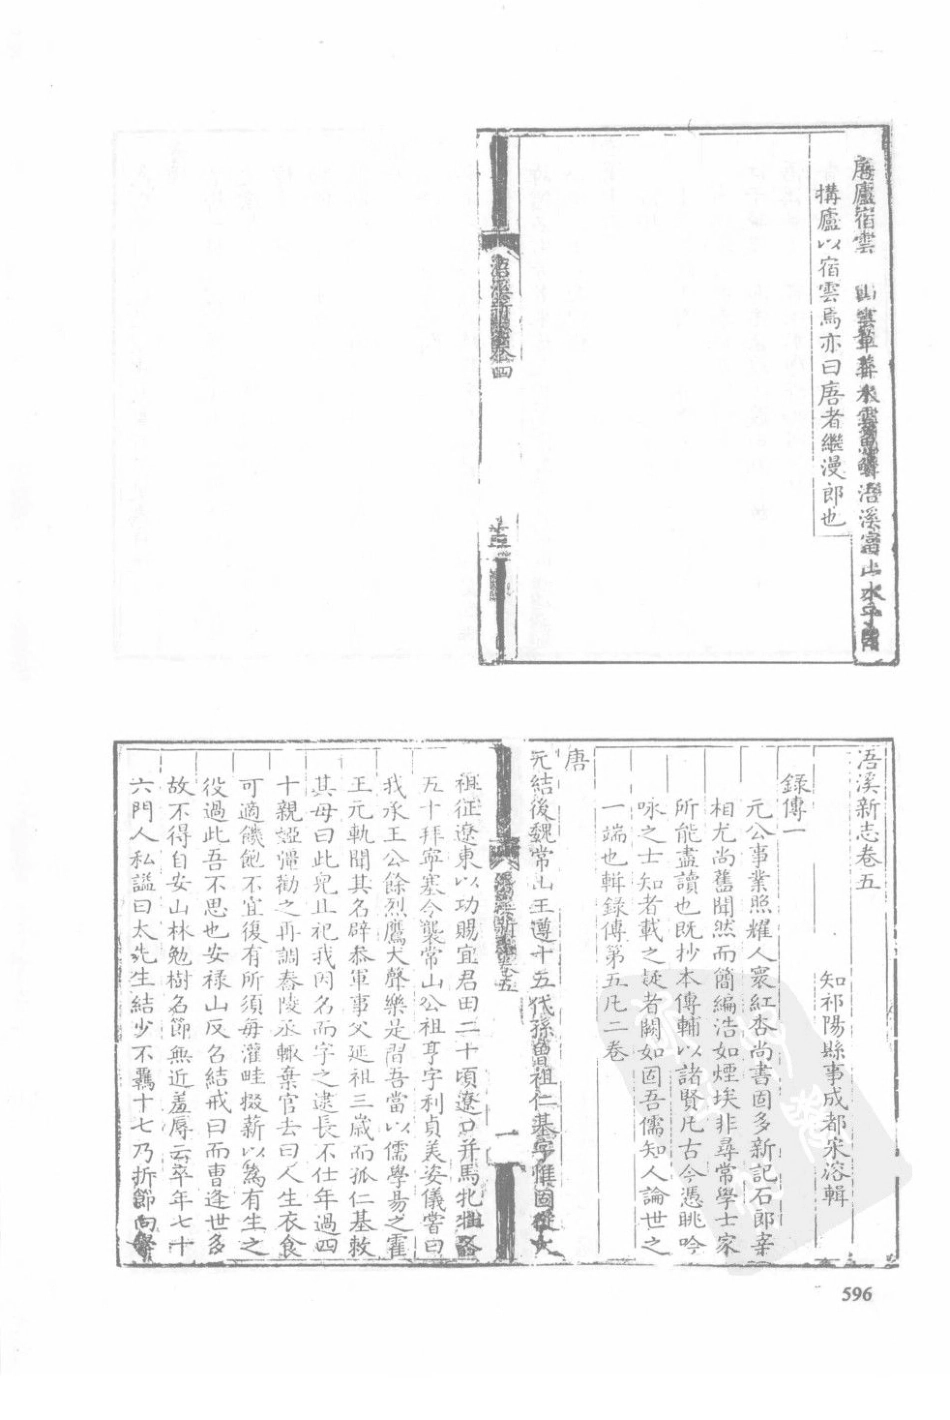 㾿廬宿雲
浯溪富山水
構廬以宿雲焉亦曰㾿者繼漫郎也
浯溪新志卷四
十三
浯溪新志卷五
知祁陽縣事成都宋溶輯
錄傳一
元公事業照耀人寰紅杏尚書固多新記石郎幸
相尤尚舊聞然而簡編浩如煙埃非尋常學士家
所能盡讀也既抄本傳輔以諸賢凡古今憑眺吟
咏之士知者載之疑者闕如固吾儒知人論世之
一端也輯錄傳第五凡二卷
唐
元結後魏常山王遵十五代孫曾祖仁基字惟固從太
祖征遼東以功賜宜君田二十頃遼口并馬牝牡各
五十拜寧塞令襲常山公祖亨字利貞美姿儀嘗曰
我承王公餘烈鷹犬聲樂是習吾當以儒學易之霍
王元軌聞其名辟恭軍事父延祖三歲而孤仁基敕
其母曰此兒且祀我因名而字之逮長不仕年過四
十親婭彊勸之再調舂陵丞輒棄官去曰人生衣食
可適饑飽不宜復有所須每灌畦掇薪以為有生之
役過此吾不思也安祿山反召結戒曰而曹逢世多
故不得自安山林勉樹名節無近羞辱云卒年七十
六門人私謚曰太先生結少不羈十七乃折節向學
浯溪新志卷五
一
596